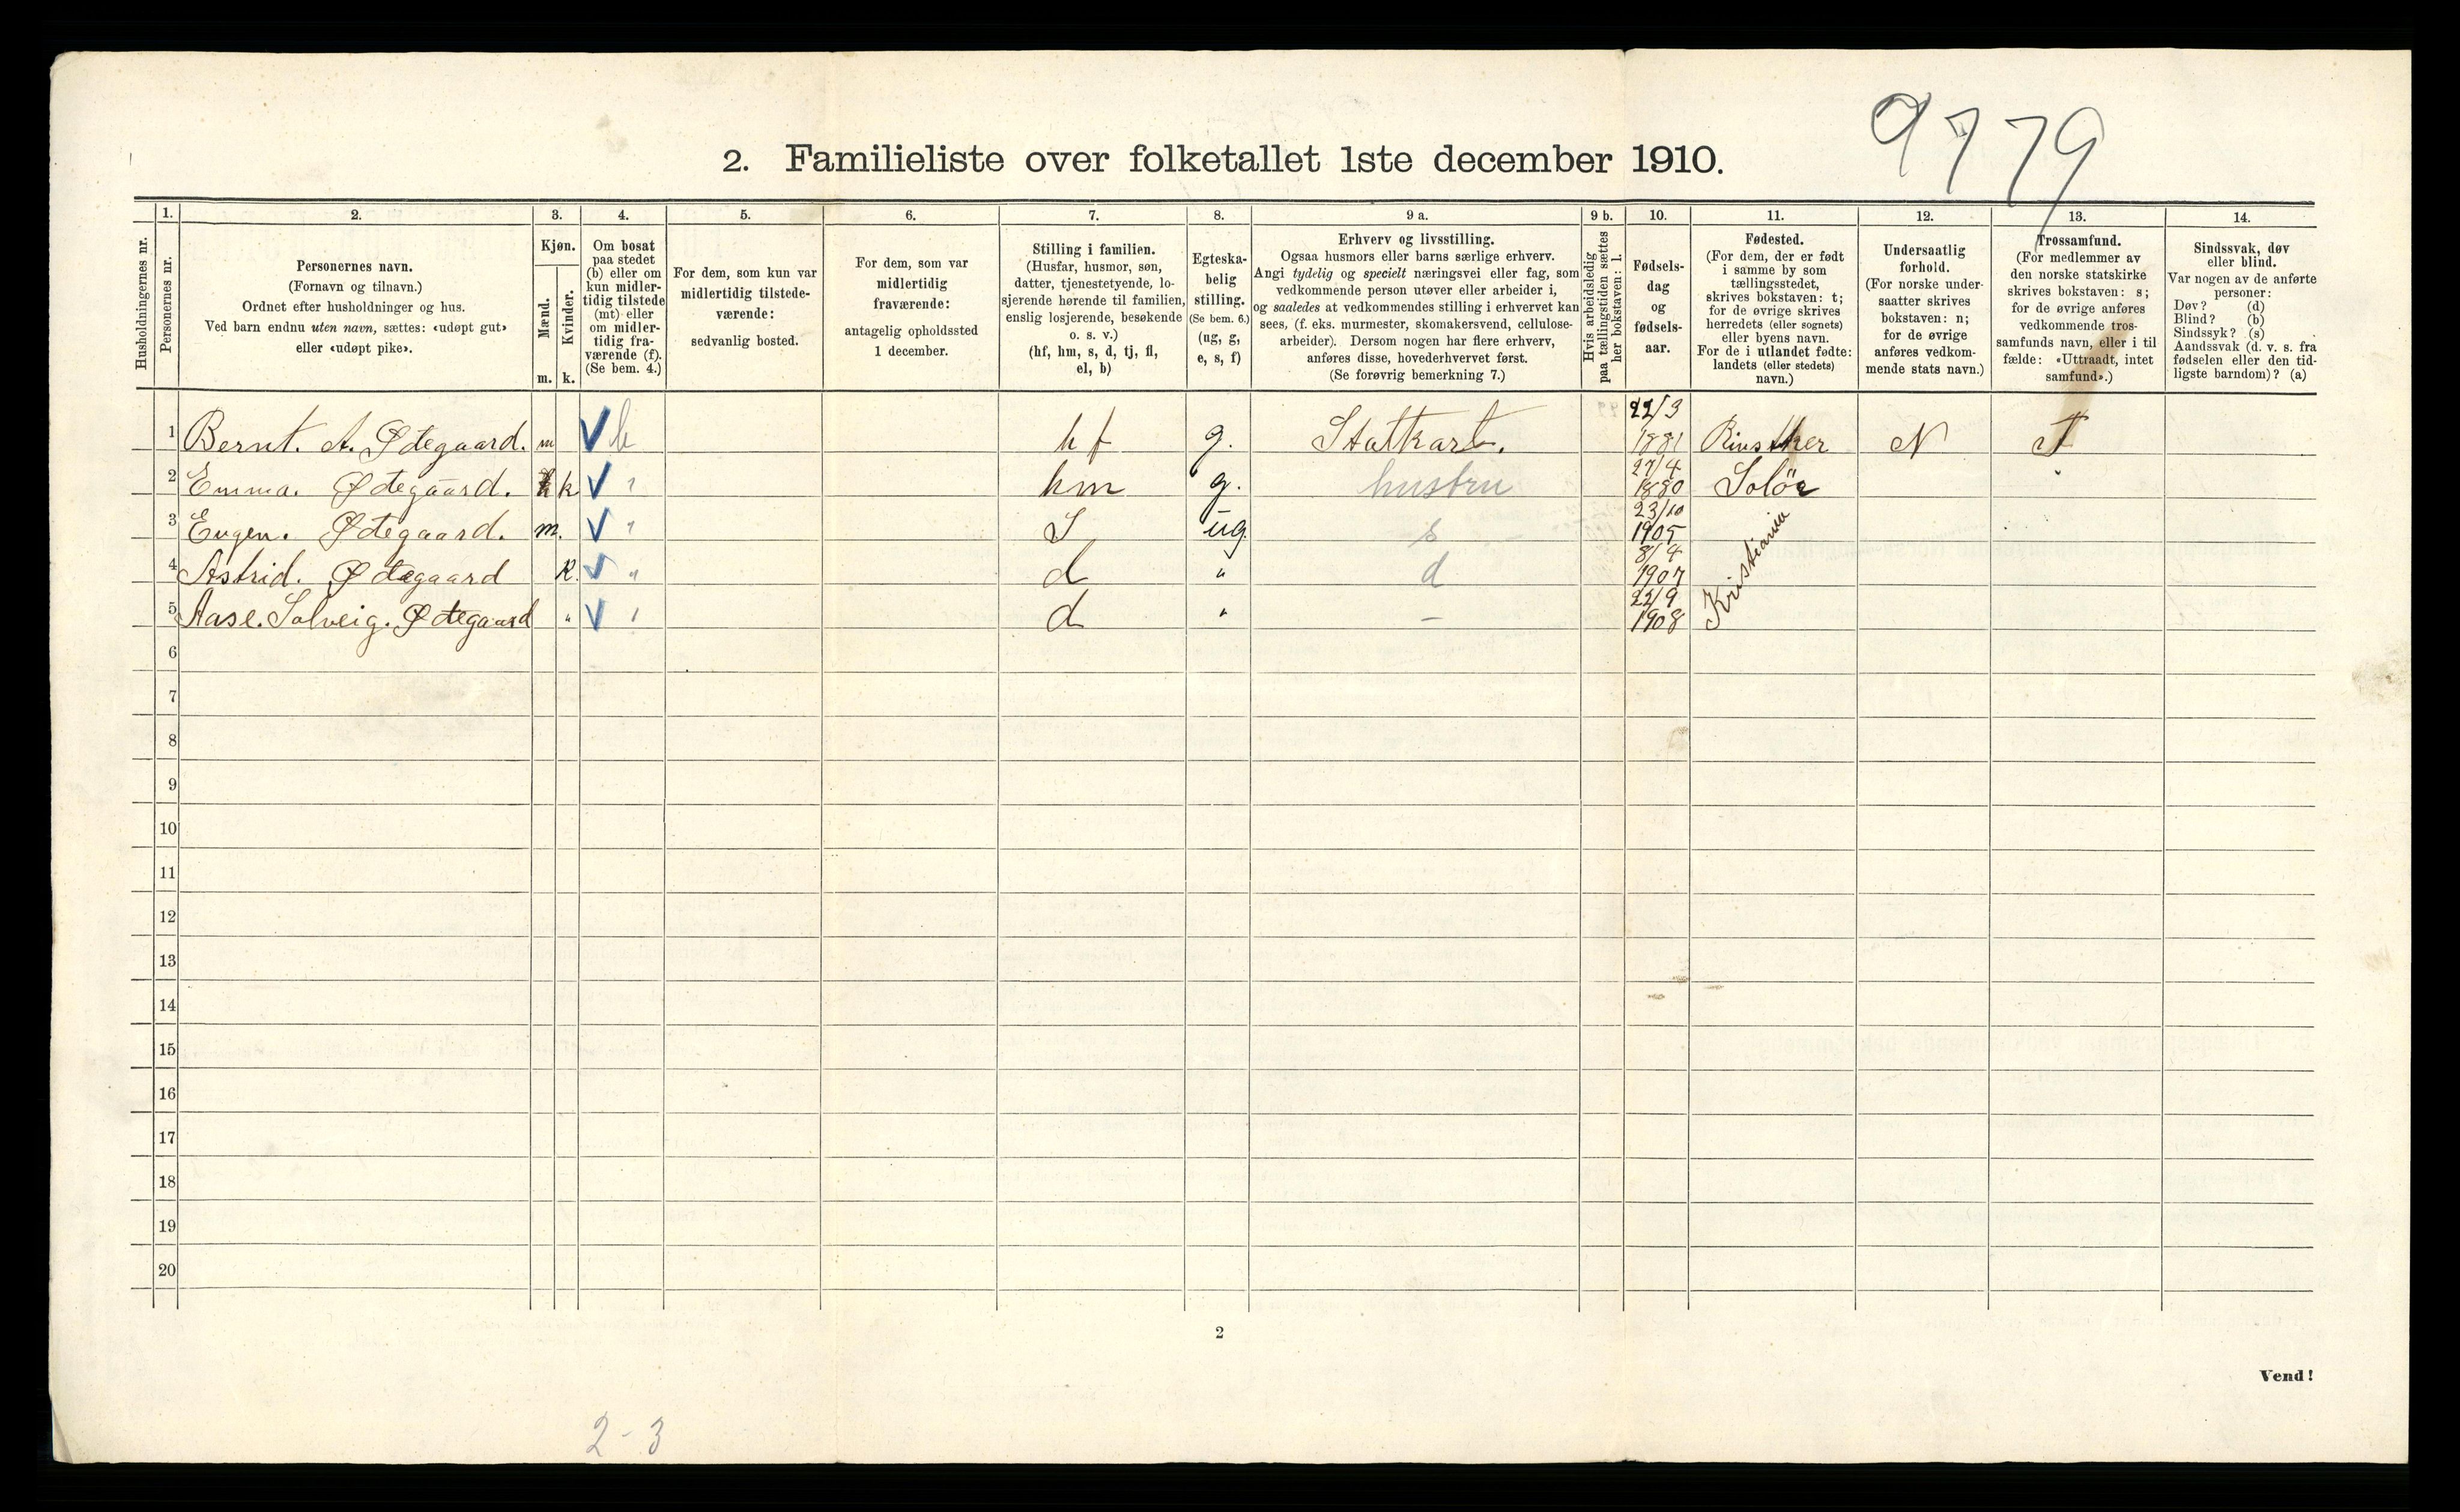 9779
2. Familieliste over folketallet 1ste december 1910.
Husholdningernes nr.
1.
Personernes nr.
2.
Personernes navn.
(Fornavn og tilnavn.)
Ordnet efter husholdninger og hus.
Ved barn endnu uten navn, sættes: «udøpt gut»
eller «udøpt pike».
3.
Kjøn.
Mænd.
Kvinder.
m. k.
4.
Om bosat
paa stedet
(b) eller om
kun midler-
tidig tilstede
(mt) eller
om midler-
tidig fra-
værende (f).
(Se bem. 4.)
5.
For dem, som kun var
midlertidig tilstede-
værende:
sedvanlig bosted.
6.
For dem, som var
midlertidig
fraværende:
antagelig opholdssted
1 december.
7.
Stilling i familien.
(Husfar, husmor, søn,
datter, tjenestetyende, lo-
sjerende hørende til familien,
enslig losjerende, besøkende
o. s. v.)
(hf, hm, s, d, tj, fl,
el, b)
8.
Egteska-
belig
stilling.
(Se bem. 6.)
(ug, g,
e, s, f)
9 a.
Erhverv og livsstilling.
Ogsaa husmors eller barns særlige erhverv.
Angi tydelig og specielt næringsvei eller fag, som
vedkommende person utøver eller arbeider i,
og saaledes at vedkommendes stilling i erhvervet kan
sees, (f. eks. murmester, skomakersvend, cellulose-
arbeider). Dersom nogen har flere erhverv,
anføres disse, hovederhvervet først.
(Se forøvrig bemerkning 7.)
9 b.
Hvis arbeidsledig
paa tællingstiden sættes
her bokstaven: l.
10.
Fødsels-
dag
og
fødsels-
aar.
11.
Fødested.
(For dem, der er født
i samme by som
tællingsstedet,
skrives bokstaven: t;
for de øvrige skrives
herredets (eller sognets)
eller byens navn.
For de i utlandet fødte:
landets (eller stedets)
navn.)
12.
Undersaatlig
forhold.
(For norske under-
saatter skrives
bokstaven: n;
for de øvrige
anføres vedkom-
mende stats navn.)
13.
Trossamfund.
(For medlemmer av
den norske statskirke
skrives bokstaven: s;
for de øvrige anføres
vedkommende tros-
samfunds navn, eller i til
fælde: «Uttraadt, intet
samfund».)
14.
Sindssvak, døv
eller blind.
Var nogen av de anførte
personer:
Døv? (d)
Blind? (b)
Sindssyk? (s)
Aandssvak (d. v. s. fra
fødselen eller den tid-
ligste barndom)? (a)
1 Bernt. A. Ødegaard. m b hf g. 22/3 1881 N
2 Emma. Ødegaard. k " hm g. hustru 27/4 1880 Solör
3 Eugen. Ødegaard. m. " S ug s 23/10 1905 Kristiania
4 Astrid. Ødegaard k. " d " d 8/4 1907
5 Aase. Solveig. Ødegaard " " d " – 22/9 1908
6
7
8
9
10
11
12
13
14
15
16
17
18
19
20
2
Vend!
2-3